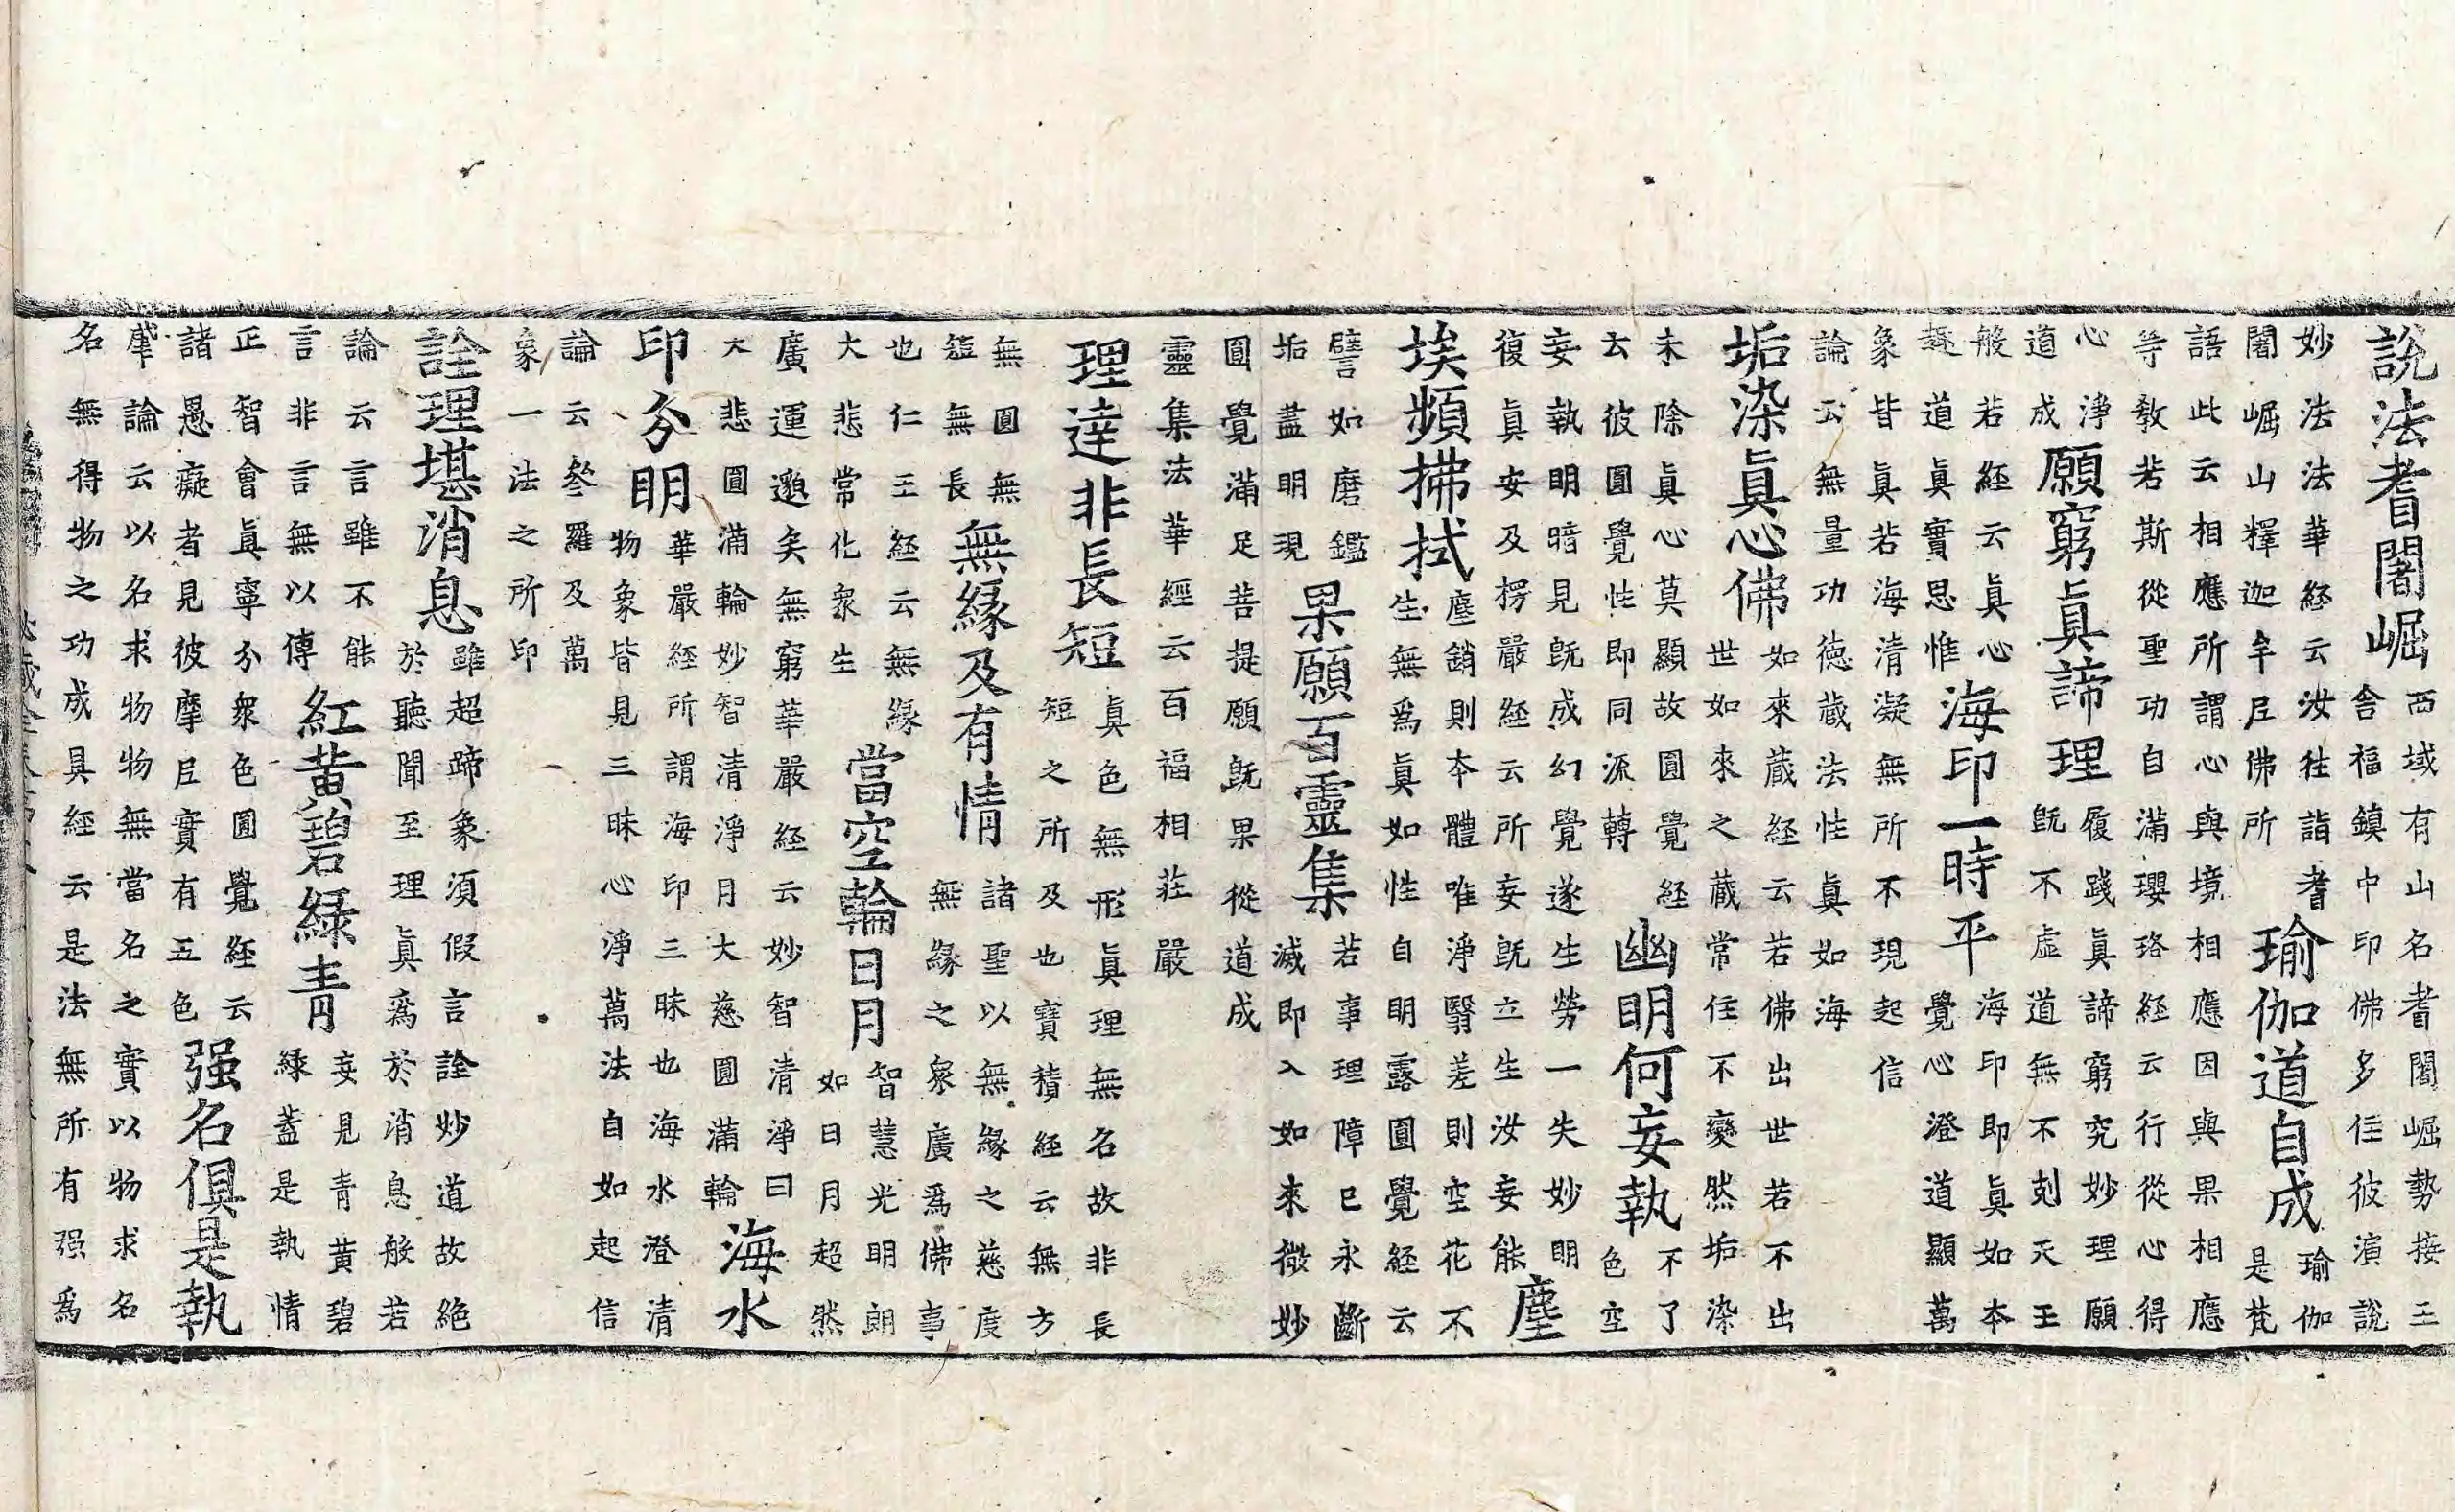 說法耆闍崛
西域有山名耆闍崛勢接王
舍福鎮中印佛多住彼演說
妙法法華経云汝往詣耆
闍崛山釋迦牟尼佛所
瑜伽道自成
瑜伽
是梵
語此云相應所謂心與境相應因與果相應
等敎若斯從聖功自滿瓔珞経云行從心得
心淨
道成
願窮眞諦理
履踐眞諦窮究妙理願
旣不虛道無不剋天王
般若経云眞心
趣道眞實思惟
海印一時平
海印即眞如本
覺心澄道顯萬
象皆眞若海清凝無所不現起信
論云無量功徳蔵法性眞如海
垢染眞心佛
如來蔵経云若佛出世若不出
世如來之蔵常住不變然垢染
未除眞心莫顯故圓覺経
云彼圓覺性即同源轉
幽明何妄執
不了
色空
妄執明暗見旣成幻覺遂生勞一失妙明
復眞妄及楞嚴経云所妄旣立生汝妄能
塵
埃頻拂拭
塵銷則本體唯淨翳差則空花不
生無爲眞如性自明露圓覺経云
譬如磨鑑
垢盡明現
果願百靈集
若事理障已永斷
滅即入如來微妙
圓覺滿足菩提願旣果從道成
靈集法華經云百福相莊嚴
理達非長短
眞色無形眞理無名故非長
短之所及也寶積経云無方
無圓無
短無長
無緣及有情
諸聖以無緣之慈度
無緣之衆廣爲佛事
也仁王経云無緣
大悲常化衆生
當空輪日月
智慧光明朗
如日月超然
廣運邈矣無窮華嚴経云妙智清淨曰
大悲圓滿輪妙智清淨月大慈圓滿輪
海水
印分明
華嚴経所謂海印三昧也海水澄清
物象皆見三昧心淨萬法自如起信
論云叅羅及萬
象一法之所印
詮理堪消息
雖超蹄象須假言詮妙道故絶
於聽聞至理眞爲於消息般若
論云言雖不能
言非言無以傳
紅黃碧緑青
妄見青黃碧
緑蓋是執情
正智會眞寧分衆色圓覺経云
諸愚癡者見彼摩尼實有五色
强名俱是執
肇論云以名求物物無當名之實以物求名
名無得物之功成具経云是法無所有强爲